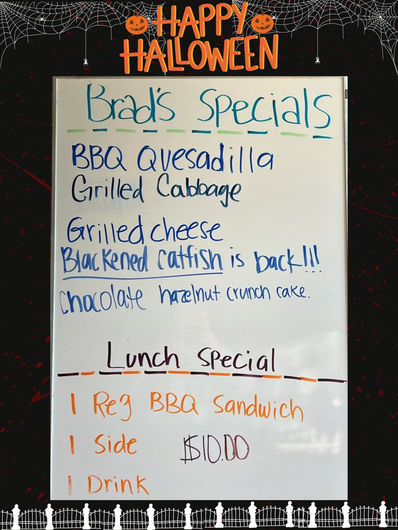 HAPPY
HALLOWEEN
Brad's Specials
BBQ Quesadilla
Grilled Cabbage
Grilled cheese
Blackened catfish is back!!!
chocolate hazelnut crunch cake.
Lunch Special
1 Reg BBQ Sandwich
1 Side $10.00
1 Drink